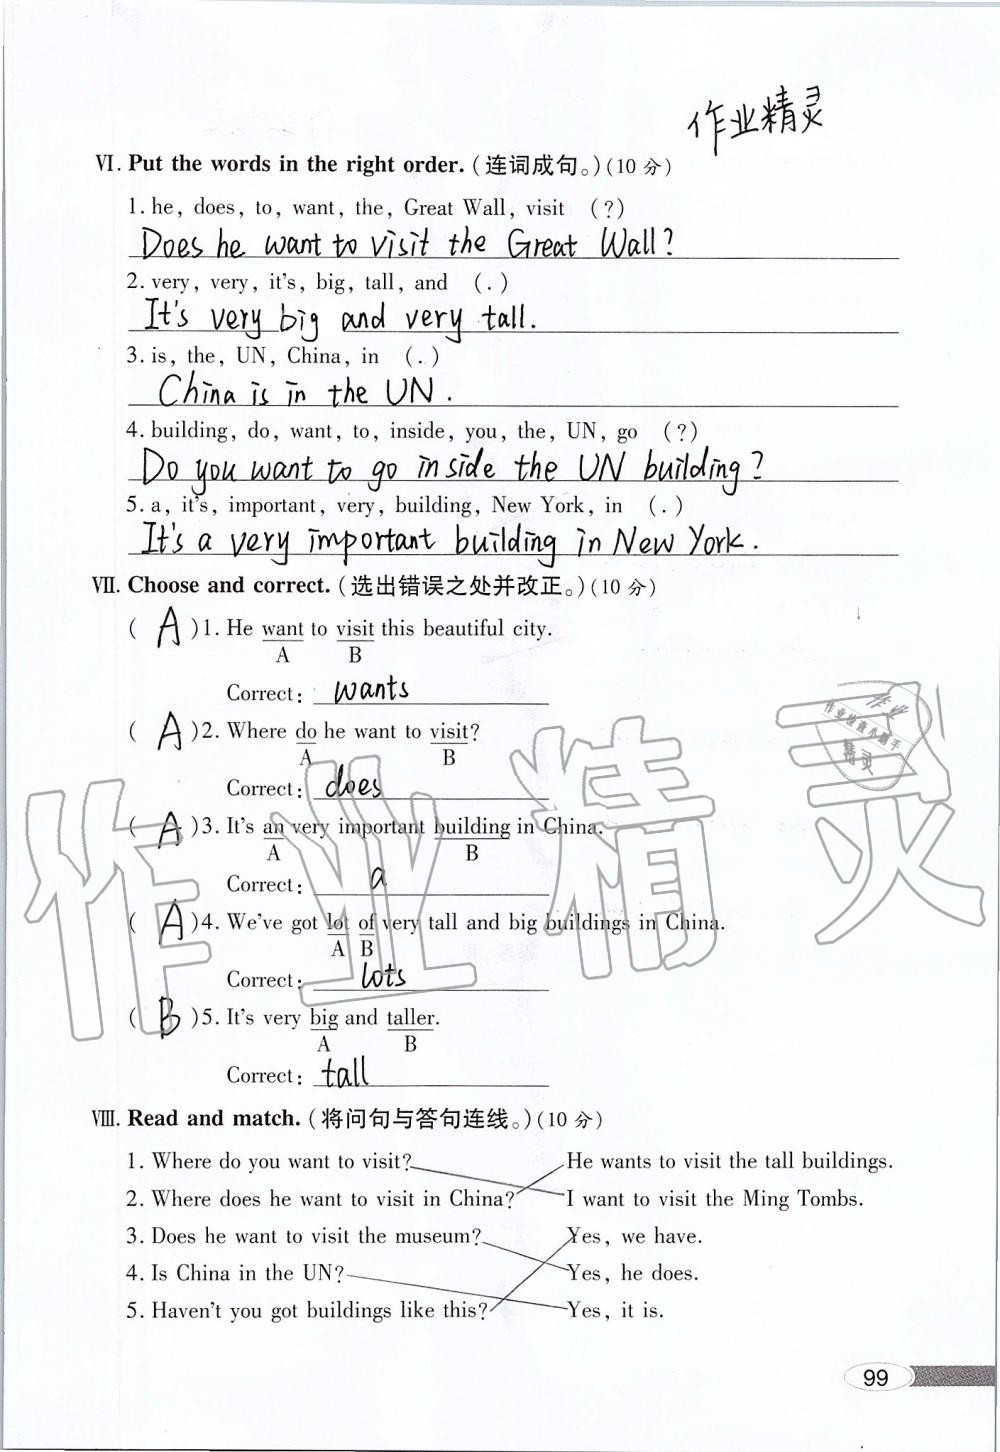 作业精灵
Ⅵ. Put the words in the right order. (连词成句。)(10 分)
1. he, does, to, want, the, Great Wall, visit (?)
Does he want to visit the Great Wall?
2. very, very, it's, big, tall, and (.)
It's very big and very tall.
3. is, the, UN, China, in (.)
China is in the UN.
4. building, do, want, to, inside, you, the, UN, go (?)
Do you want to go inside the UN building?
5. a, it's, important, very, building, New York, in (.)
It's a very important building in New York.
Ⅶ. Choose and correct. (选出错误之处并改正。)(10 分)
( A )1. He want to visit this beautiful city.
A B
Correct: wants
( A )2. Where do he want to visit?
A B
Correct: does
( A )3. It's an very important building in China.
A B
Correct: a
( A )4. We've got lot of very tall and big buildings in China.
A B
Correct: lots
( B )5. It's very big and taller.
A B
Correct: tall
Ⅷ. Read and match. (将问句与答句连线。)(10 分)
1. Where do you want to visit? He wants to visit the tall buildings.
2. Where does he want to visit in China? I want to visit the Ming Tombs.
3. Does he want to visit the museum? Yes, we have.
4. Is China in the UN? Yes, he does.
5. Haven't you got buildings like this? Yes, it is.
99
作业精灵
作业
作业检查小助手
精灵